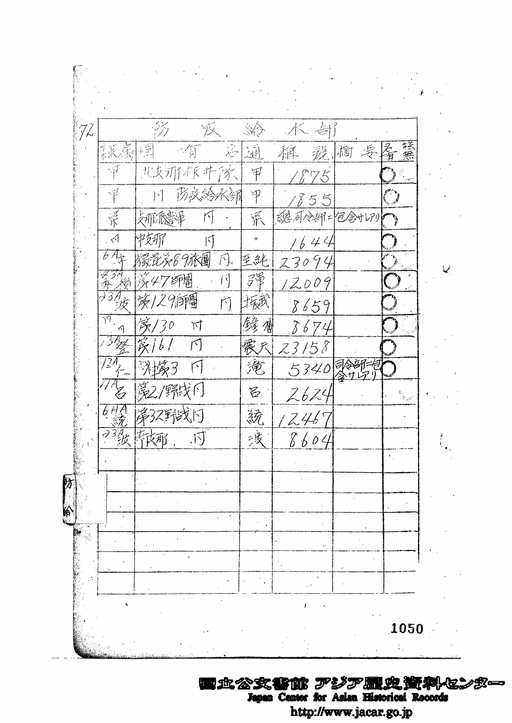 72
防疫給水部
隷属 固有名 通称号 摘要
甲 北支那作井隊 甲 1875
甲 〃 防疫給水部 甲 1855
栄 支那派遣軍 〃 栄 総司令部ニ包含サレアリ
〃 中支那 〃 〃 1644
6A 独混第89旅団 〃 至純 23094
第47師団 〃 弾 12009
23A 波 第129師団 〃 振武 8659
〃 第130 〃 鐘馗 8674
13A 登 第161 〃 震天 23158
12A 仁 第3 〃 滝 5340 司令部ニ包含サレアリ
11A 呂 第21野戦〃 呂 2624
6HA 統 第32野戦〃 統 12467
23A 波 南支那 〃 波 8604
防給
1050
国立公文書館 アジア歴史資料センター
Japan Center for Asian Historical Records
http://www.jacar.go.jp